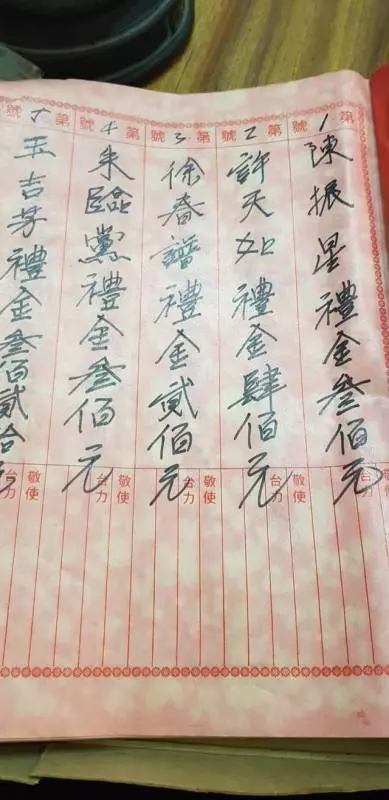 第1號
陳振星禮金叁佰元
敬使台力
第2號
許天如禮金肆佰元
敬使台力
第3號
徐春譜禮金貳佰元
敬使台力
第4號
朱臨黨禮金叁佰元
敬使台力
第5號
玉吉芳禮金叁佰貳拾
敬使台力